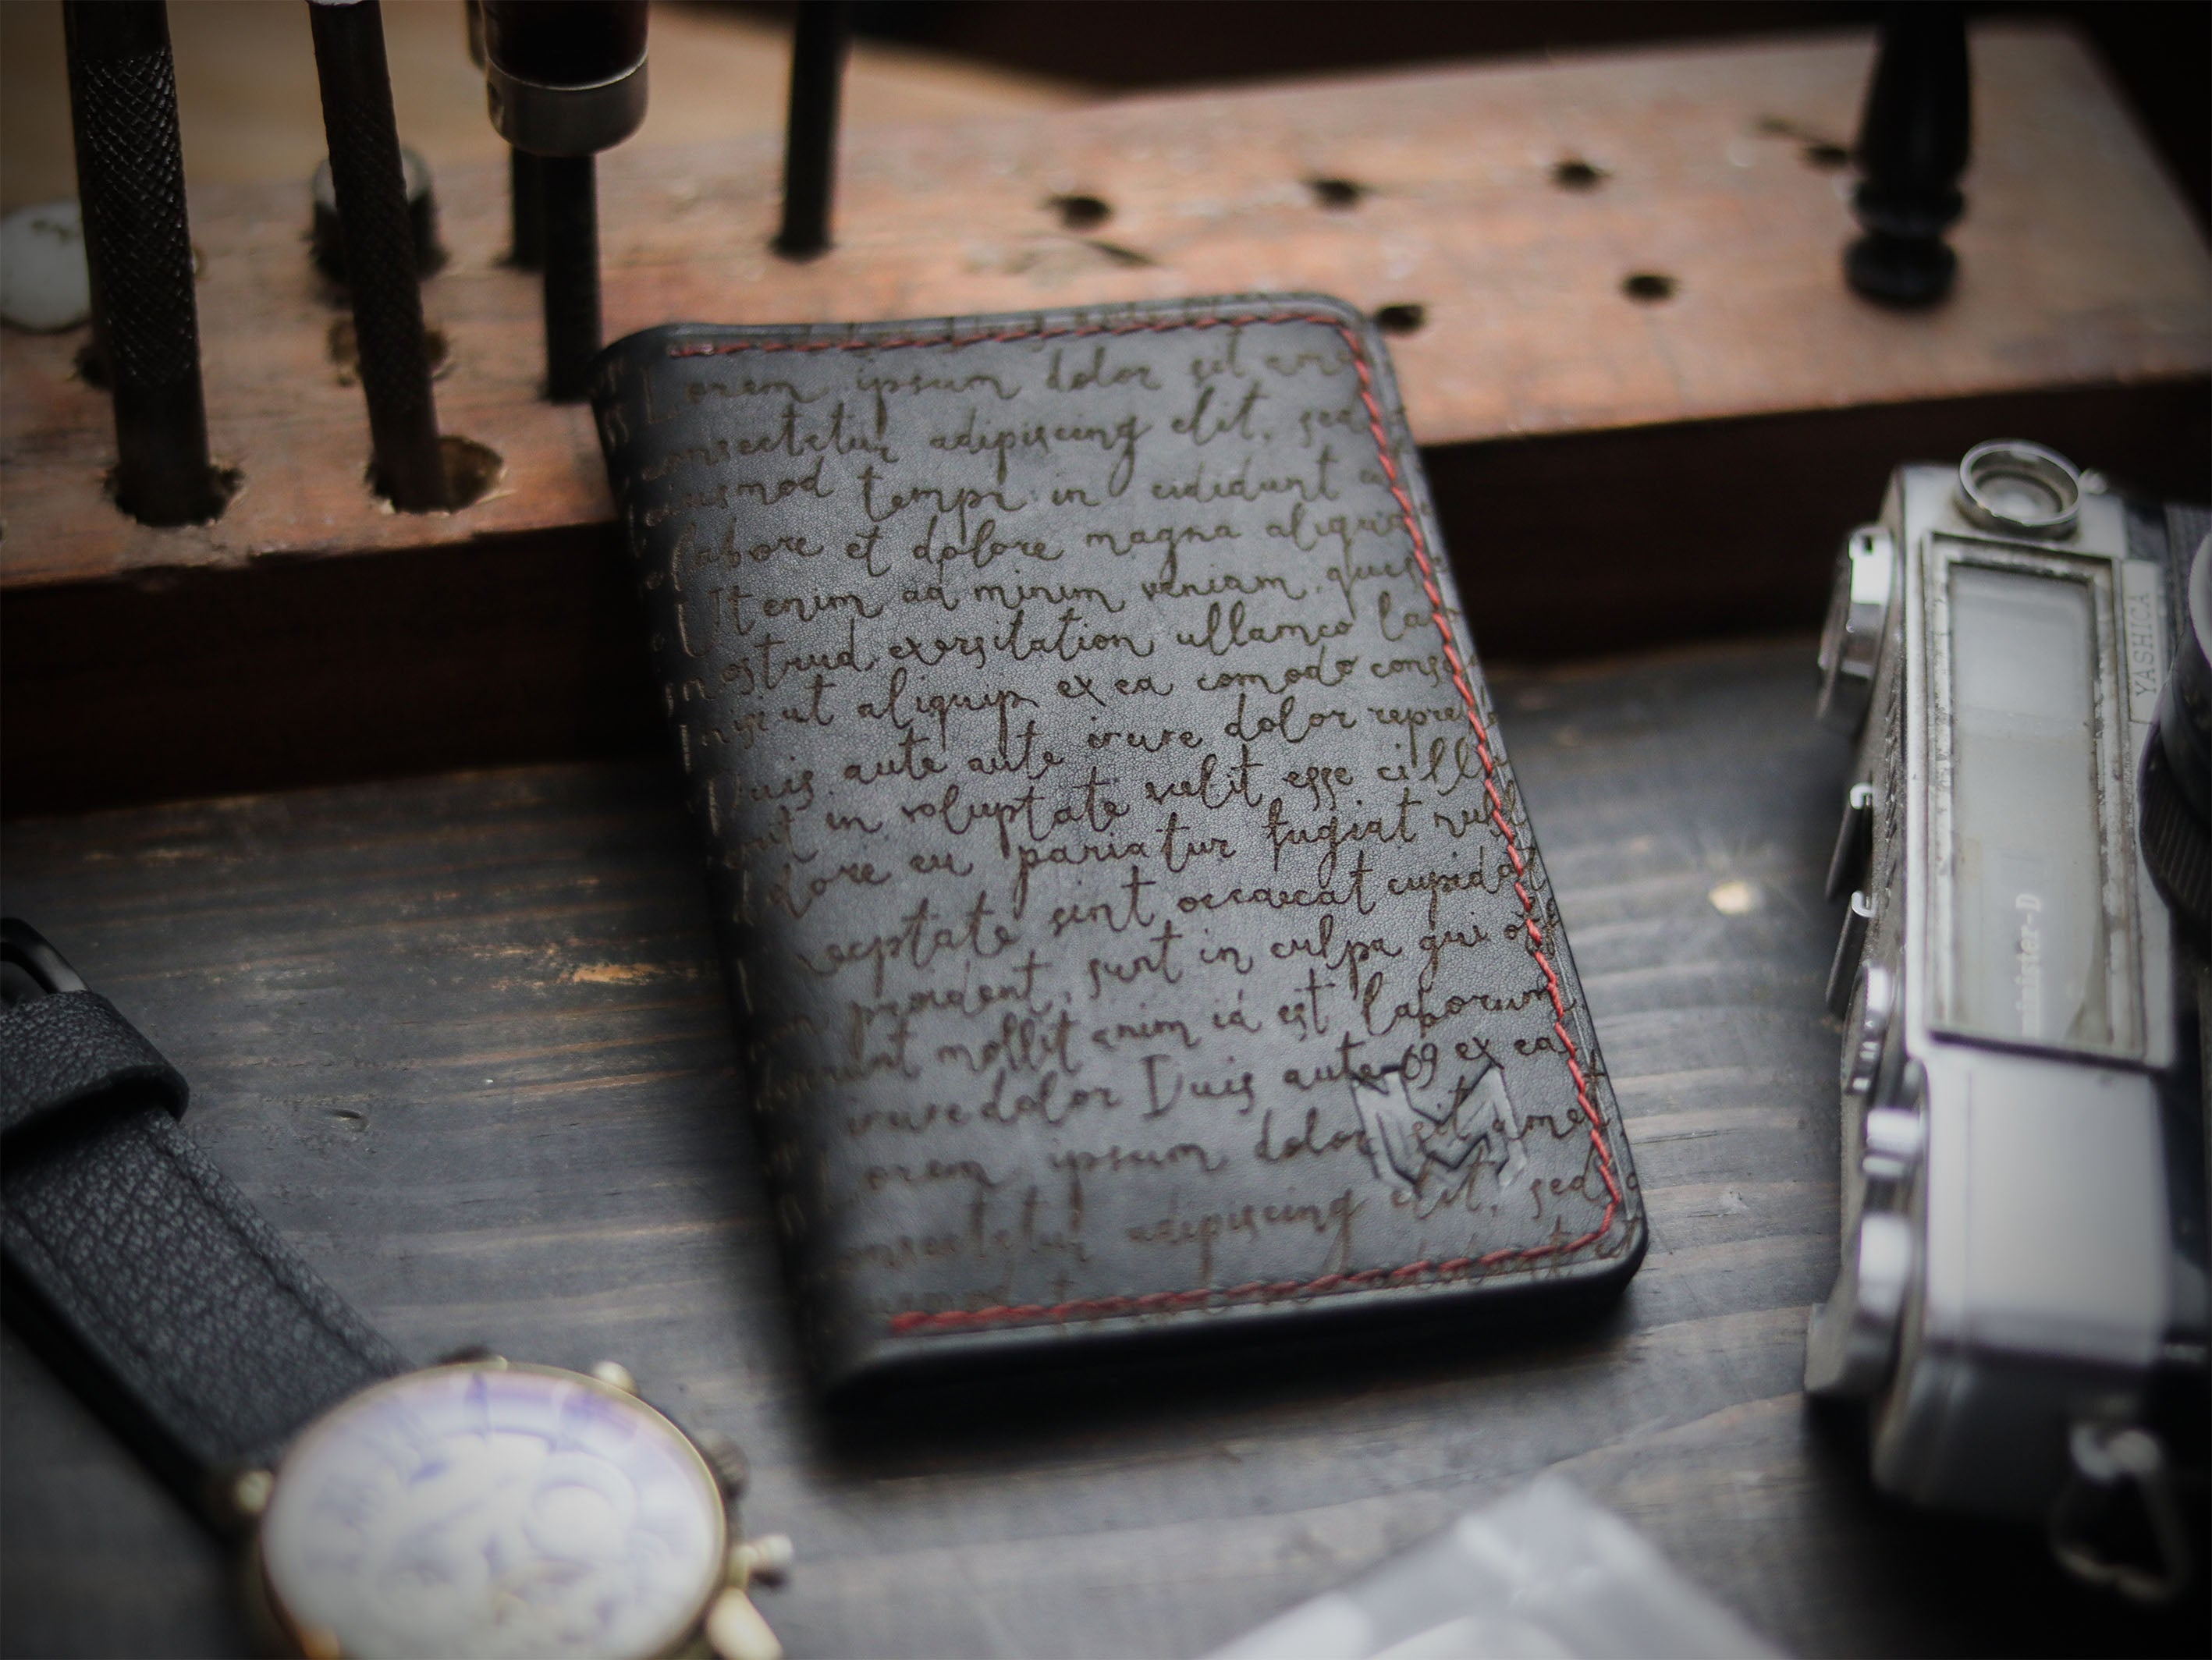 Lorem ipsum dolor sit ame
consectetur adipiscing elit, sed
eiusmod tempr in cididunt
labore et dolore magna aliqua
Ut enim ad minim veniam, ques
nostrud exersitation ullamco la
ut aliquip ex ea comodo cons
Duis aute aute irure dolor repre
in voluptate velit esse cillu
dolore eu pariatur fugiat null
sint occaecat cupidat
proident, sunt in culpa qui
mollit anim id est laborum
irure dolor Duis aute ex ea
Lorem ipsum dolor sit amet
consectetur adipiscing elit, sed
YASHICA